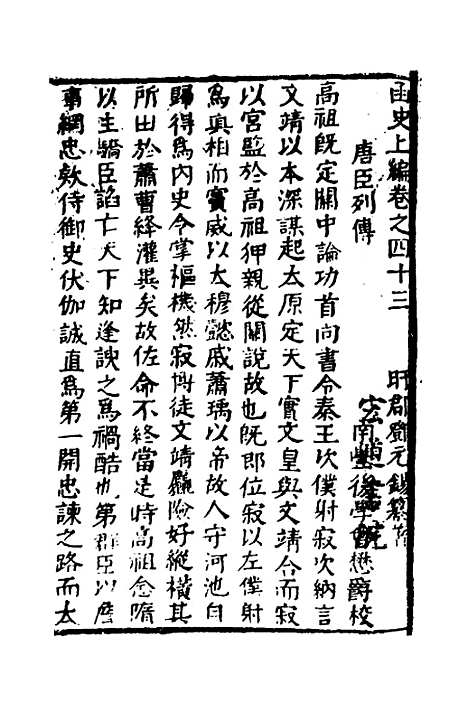 函史上編卷之四十三 盱郡鄧元錫纂著
唐臣列傳 南豐後學 懋爵校
高祖旣定關中論功首尚書令秦王次僕射寂次納言
文靖以本深謀起太原定天下實文皇與文靖合而寂
以宮監於高祖狎親從關說故也旣即位寂以左僕射
爲眞相而竇威以太穆懿戚蕭瑀以帝故人守河池自
歸得爲内史令掌樞機然寂博徒文靖麤險好縱橫其
所由於蕭曹絳灌異矣故佐命不終當是時高祖念隋
以主驕臣諂亡天下知逢諛之爲禍酷也第群臣以
事綱忠欵侍御史伏伽誠直爲第一開忠諫之路而太